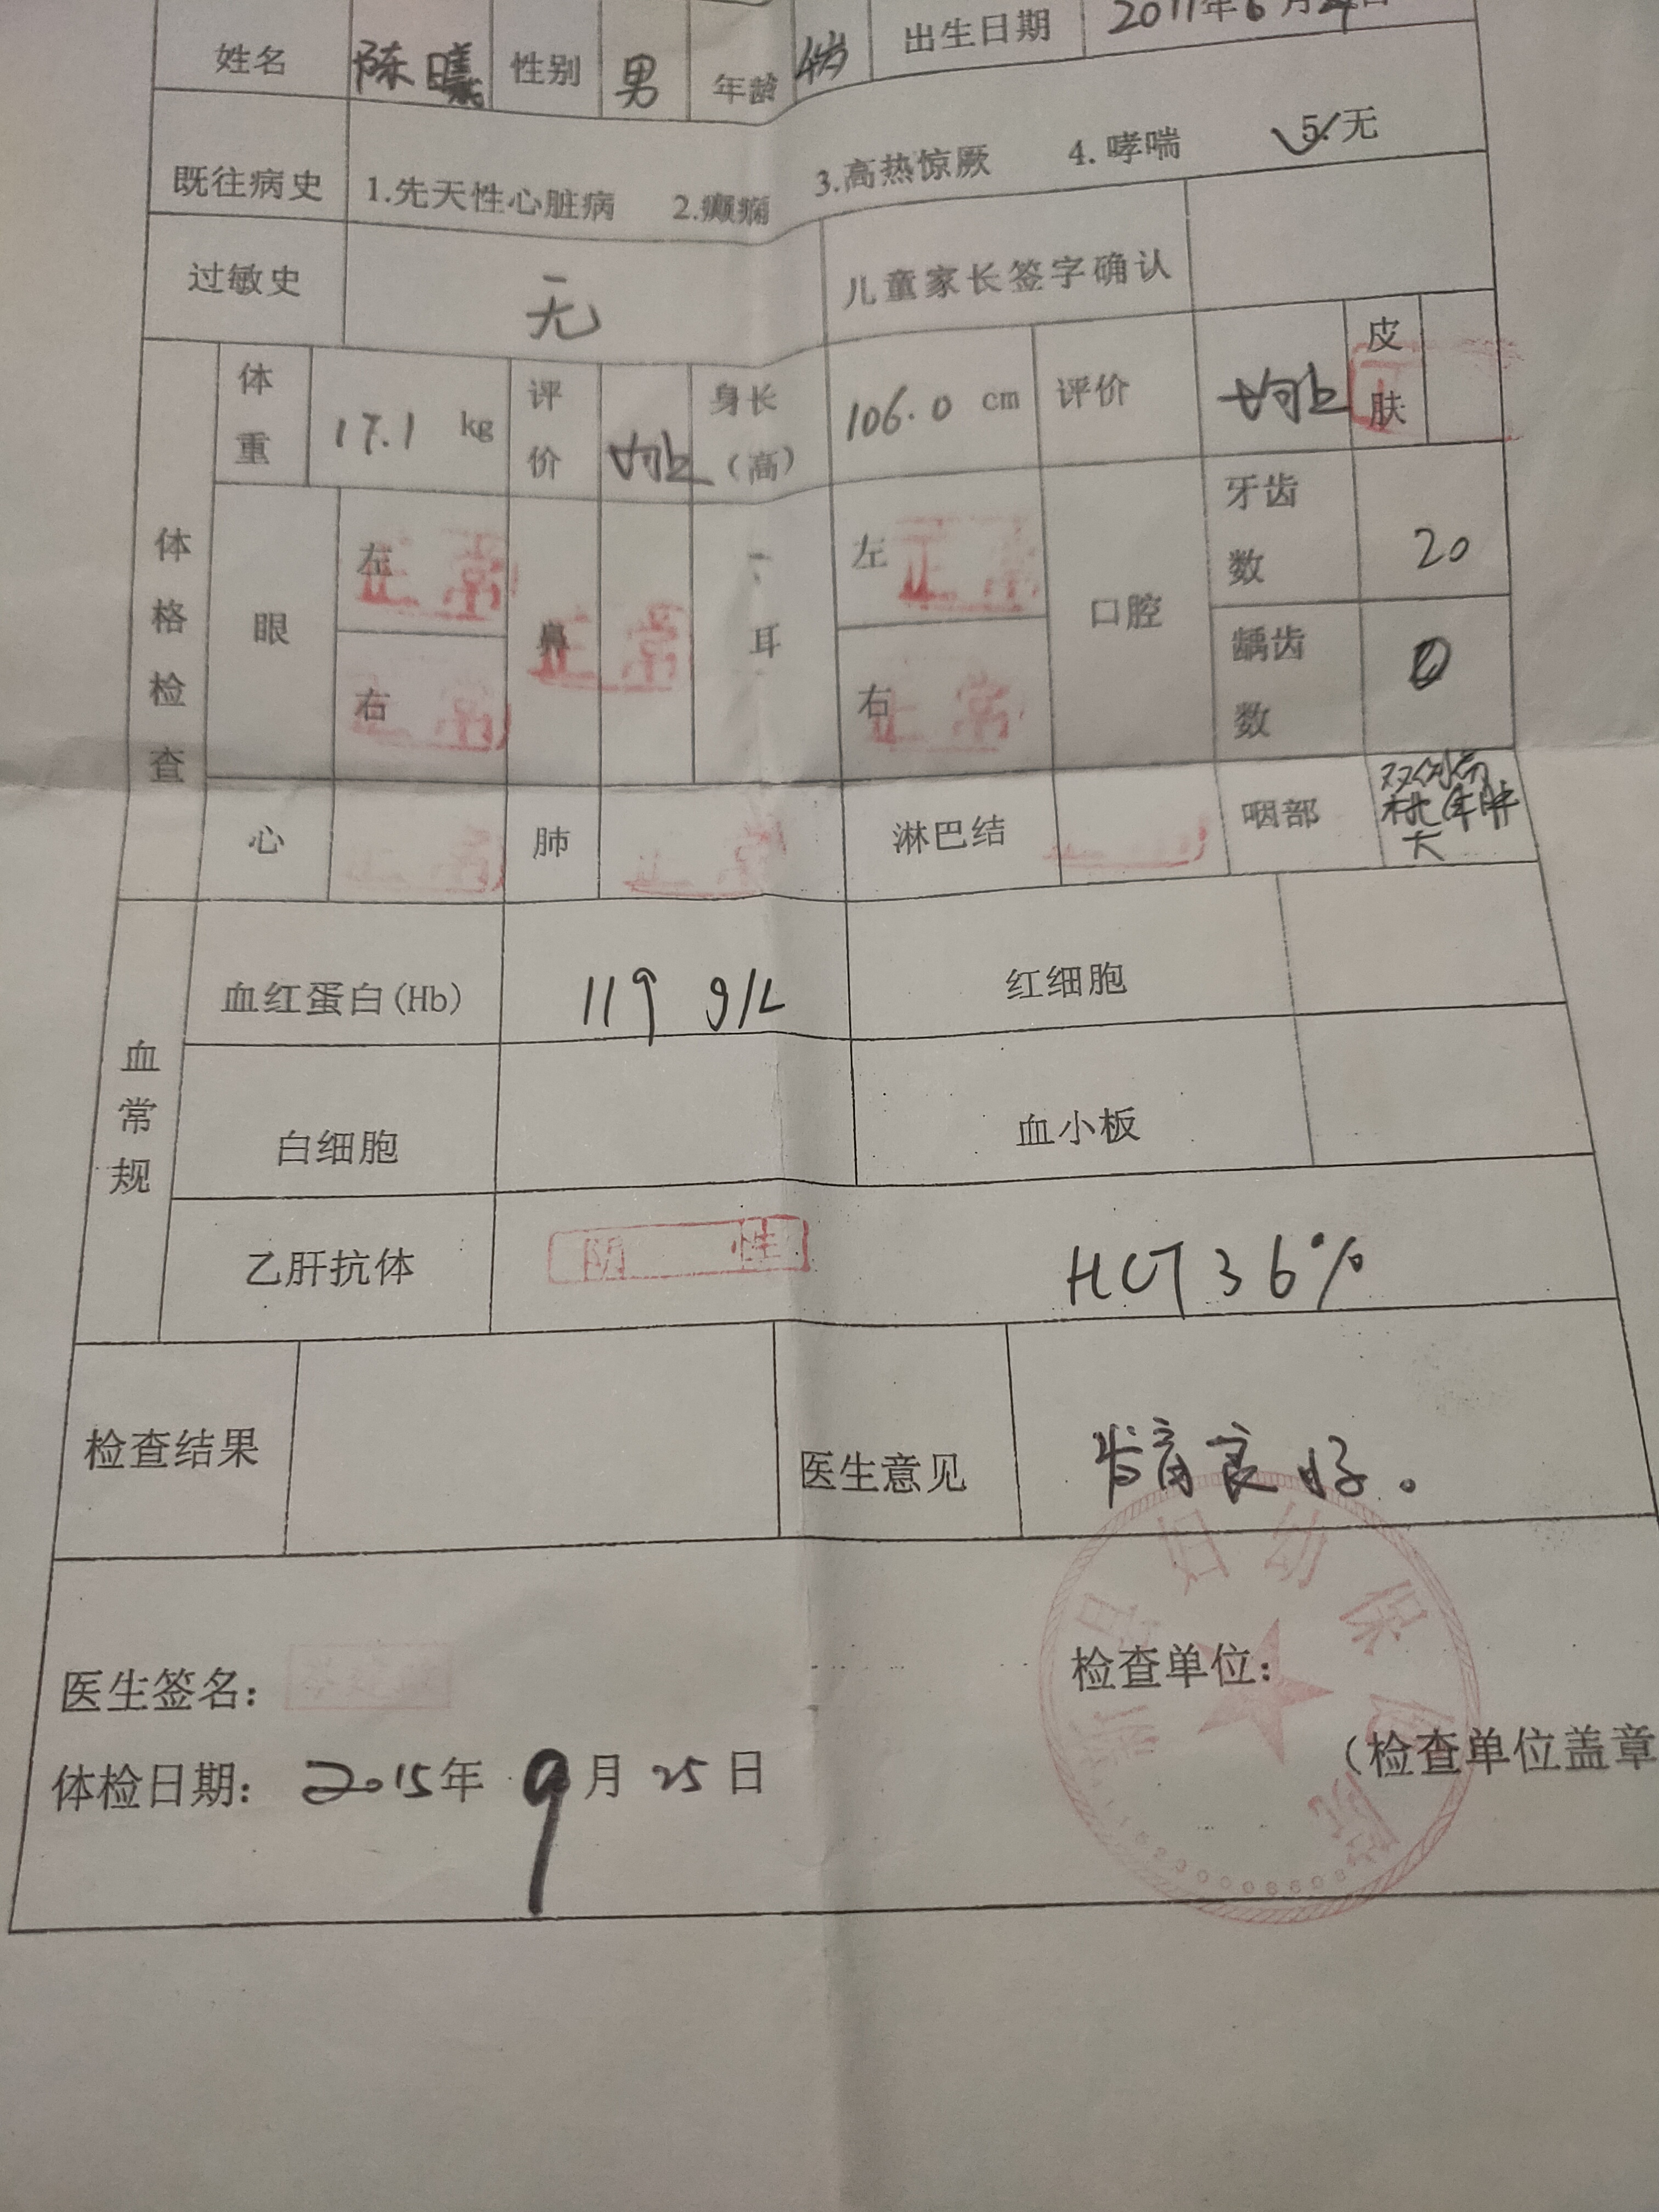 姓名 陈曦 性别 男 年龄 4岁 出生日期 2011年6月4日
既往病史 1.先天性心脏病 2.癫痫 3.高热惊厥 4.哮喘 5.无
过敏史 无 儿童家长签字确认
体格检查
体重 17.1 kg 评价 均上 身长(高) 106.0 cm 评价 均上 皮肤
眼 左 正常 鼻 正常 耳 左 正常 口腔 牙齿数 20
右 正常 右 正常 龋齿数 0
心 正常 肺 正常 淋巴结 咽部 双侧扁桃体肿大
血常规
血红蛋白(Hb) 119 g/L 红细胞
白细胞 血小板
乙肝抗体 阴性 HCT 36%
检查结果 医生意见 发育良好。
医生签名:
检查单位:
(检查单位盖章
体检日期: 2015年 9月 25日
县妇幼保健院